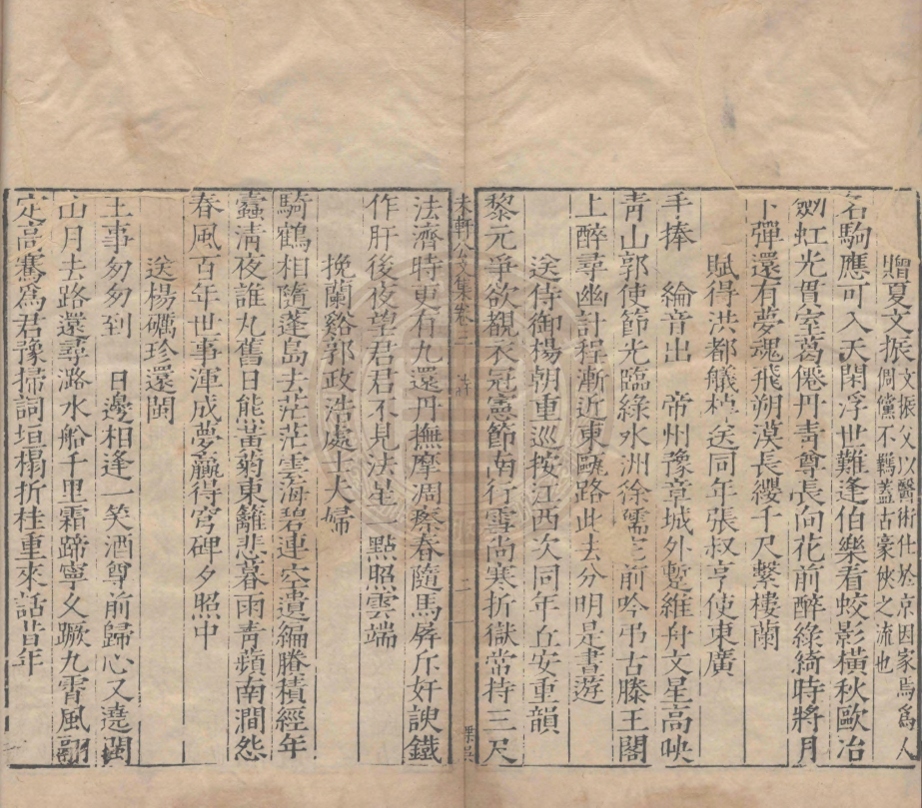 贈夏文振文振父以醫術仕於京因家焉爲人
倜儻不羈蓋古豪俠之流也
名駒應可入天閑浮世難逢伯樂看蛟影橫秋歐冶
劒虹光貫室葛僊丹靑尊長向花前醉綠綺時將月
下彈還有夢魂飛朔漠長纓千尺繫樓蘭
賦得洪都艤棹送同年張叔亨使東廣
手捧 綸音出 帝州豫章城外蹔維舟文星高映
靑山郭使節光臨綠水洲徐孺宅前吟弔古滕王閣
上醉尋幽計程漸近東甌路此去分明是晝遊
送侍御楊朝重巡按江西次同年丘安重韻
黎元爭欲覩衣冠憲節南行雪尚寒折獄常持三尺
未軒公文集卷二 詩 二 栗吳
法濟時更有九還丹撫摩凋瘵春隨馬屏斥奸諛鐵
作肝後夜望君君不見法星一點照雲端
挽蘭谿郭政浩處士夫婦
騎鶴相隨蓬島去茫茫雲海碧連空遺編賸積經年
蠹淸夜誰丸舊日熊黃菊東籬悲暮雨靑蘋南澗怨
春風百年世事渾成夢贏得穹碑夕照中
送楊礪珍還閩
王事匆匆到 日邊相逢一笑酒尊前歸心又遶閩
山月去路還尋潞水船千里霜蹄寧久蹶九霄風翮
定高騫爲君豫掃詞垣榻折桂重來話昔年